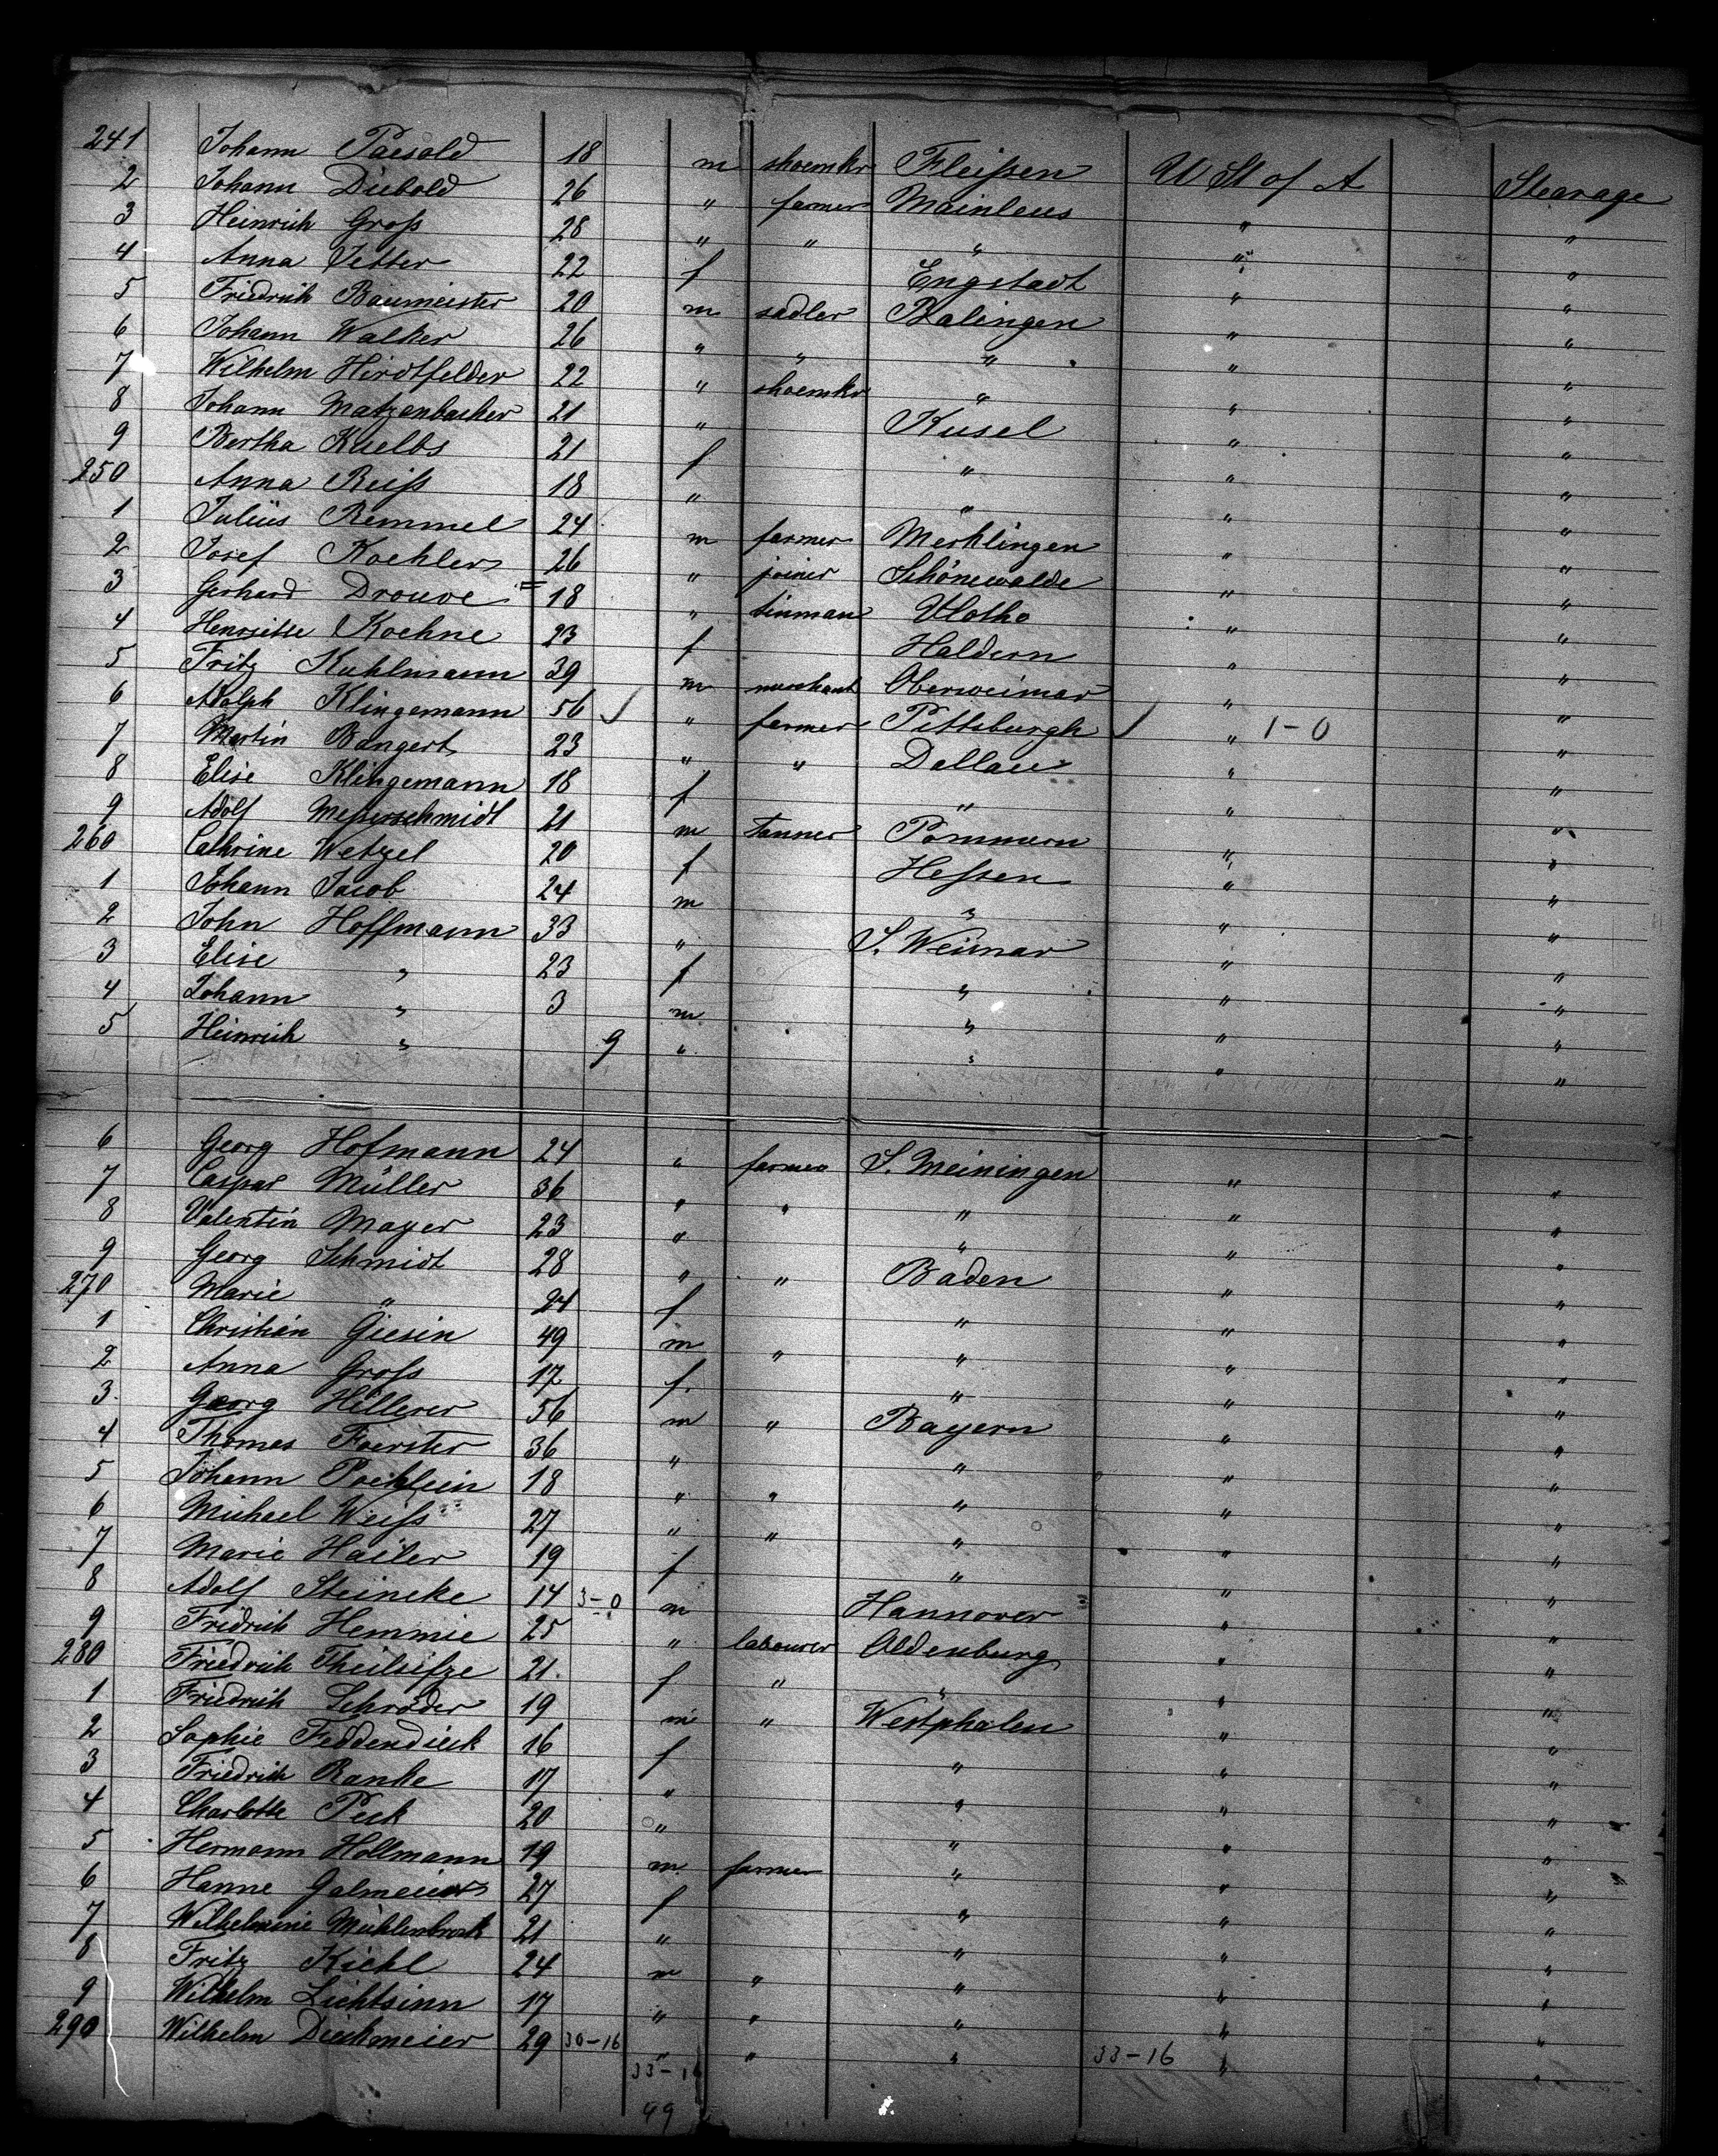 241 Johann Paesold 18 m shoemkr Fleißen U St of A Stearage
2 Johann Diebold 26 " farmer Mainleus " "
3 Heinrich Groß 28 " " " " "
4 Anna Vetter 22 f Engstadt " "
5 Friedrich Baumeister 20 m sadler Balingen " "
6 Johann Walker 26 " " " " "
7 Wilhelm Hirdtfelder 22 " shoemkr " " "
8 Johann Matzenbacher 21 " Kusel " "
9 Bertha Kuelbs 21 f " " "
250 Anna Reiß 18 " " " "
1 Julius Remmel 24 m farmer Merklingen " "
2 Josef Koehler 26 " joiner Schönewalde " "
3 Gerhard Drouve 18 " tinman Vlotho " "
4 Henriette Koehne 23 f Haldern " "
5 Fritz Kuhlmann 39 m merchant Oberweimar " "
6 Adolph Klingemann 56 " farmer Pittsburgh " 1-0 "
7 Martin Bangert 23 " " Dallau " "
8 Elise Klingemann 18 f " " "
9 Adolf Messerschmidt 21 m tanner Pommern " "
260 Cathrine Wetzel 20 f Hessen " "
1 Johann Jacob 24 m " " "
2 John Hoffmann 33 " S. Weimar " "
3 Elise " 23 f " " "
4 Johann " 3 m " " "
5 Heinrich " 9 " " " "
6 Georg Hofmann 24 " farmer S. Meiningen " "
7 Caspar Müller 36 " " " " "
8 Valentin Mayer 23 " " " "
9 Georg Schmidt 28 " " Baden " "
270 Marie " 24 f " " "
1 Christian Giesin 49 m " " " "
2 Anna Groß 17 f. " " "
3. Georg Hillerer 56 m " Bayern " "
4 Thomas Foerster 36 " " " "
5 Johann Poehlein 18 " " " " "
6 Michael Weiß 27 " " " " "
7 Marie Hailer 19 f " " "
8 Adolf Steincke 14 3-0 m Hannover " "
9 Fridrich Hemmie 25 " labourer Oldenburg " "
280 Friedrich 21 f " " " "
1 Friedrich Schröder 19 m " Westphalen " "
2 Sophie Feddendieck 16 f " " "
3 Friedrich Ranke 17 " " " "
4 Charlotte Peck 20 " " " "
5 Hermann Hollmann 19 m farmer " " "
6 Hanne Galmeier 27 f " " "
7 Wilhelmine Mühlenbrock 21 " " " "
8 Fritz Kiehl 24 m " " " "
9 Wilhelm Lichtsinn 17 " " " " "
290 Wilhelm Dieckmeier 29 30-16 " " " 33-16 " "
33-16
49